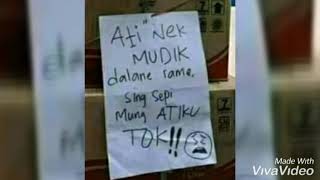 Ati" Nek
MUDIK
dalane rame,
sing sepi
Mung ATIKU
TOK!!
Made With
VivaVideo